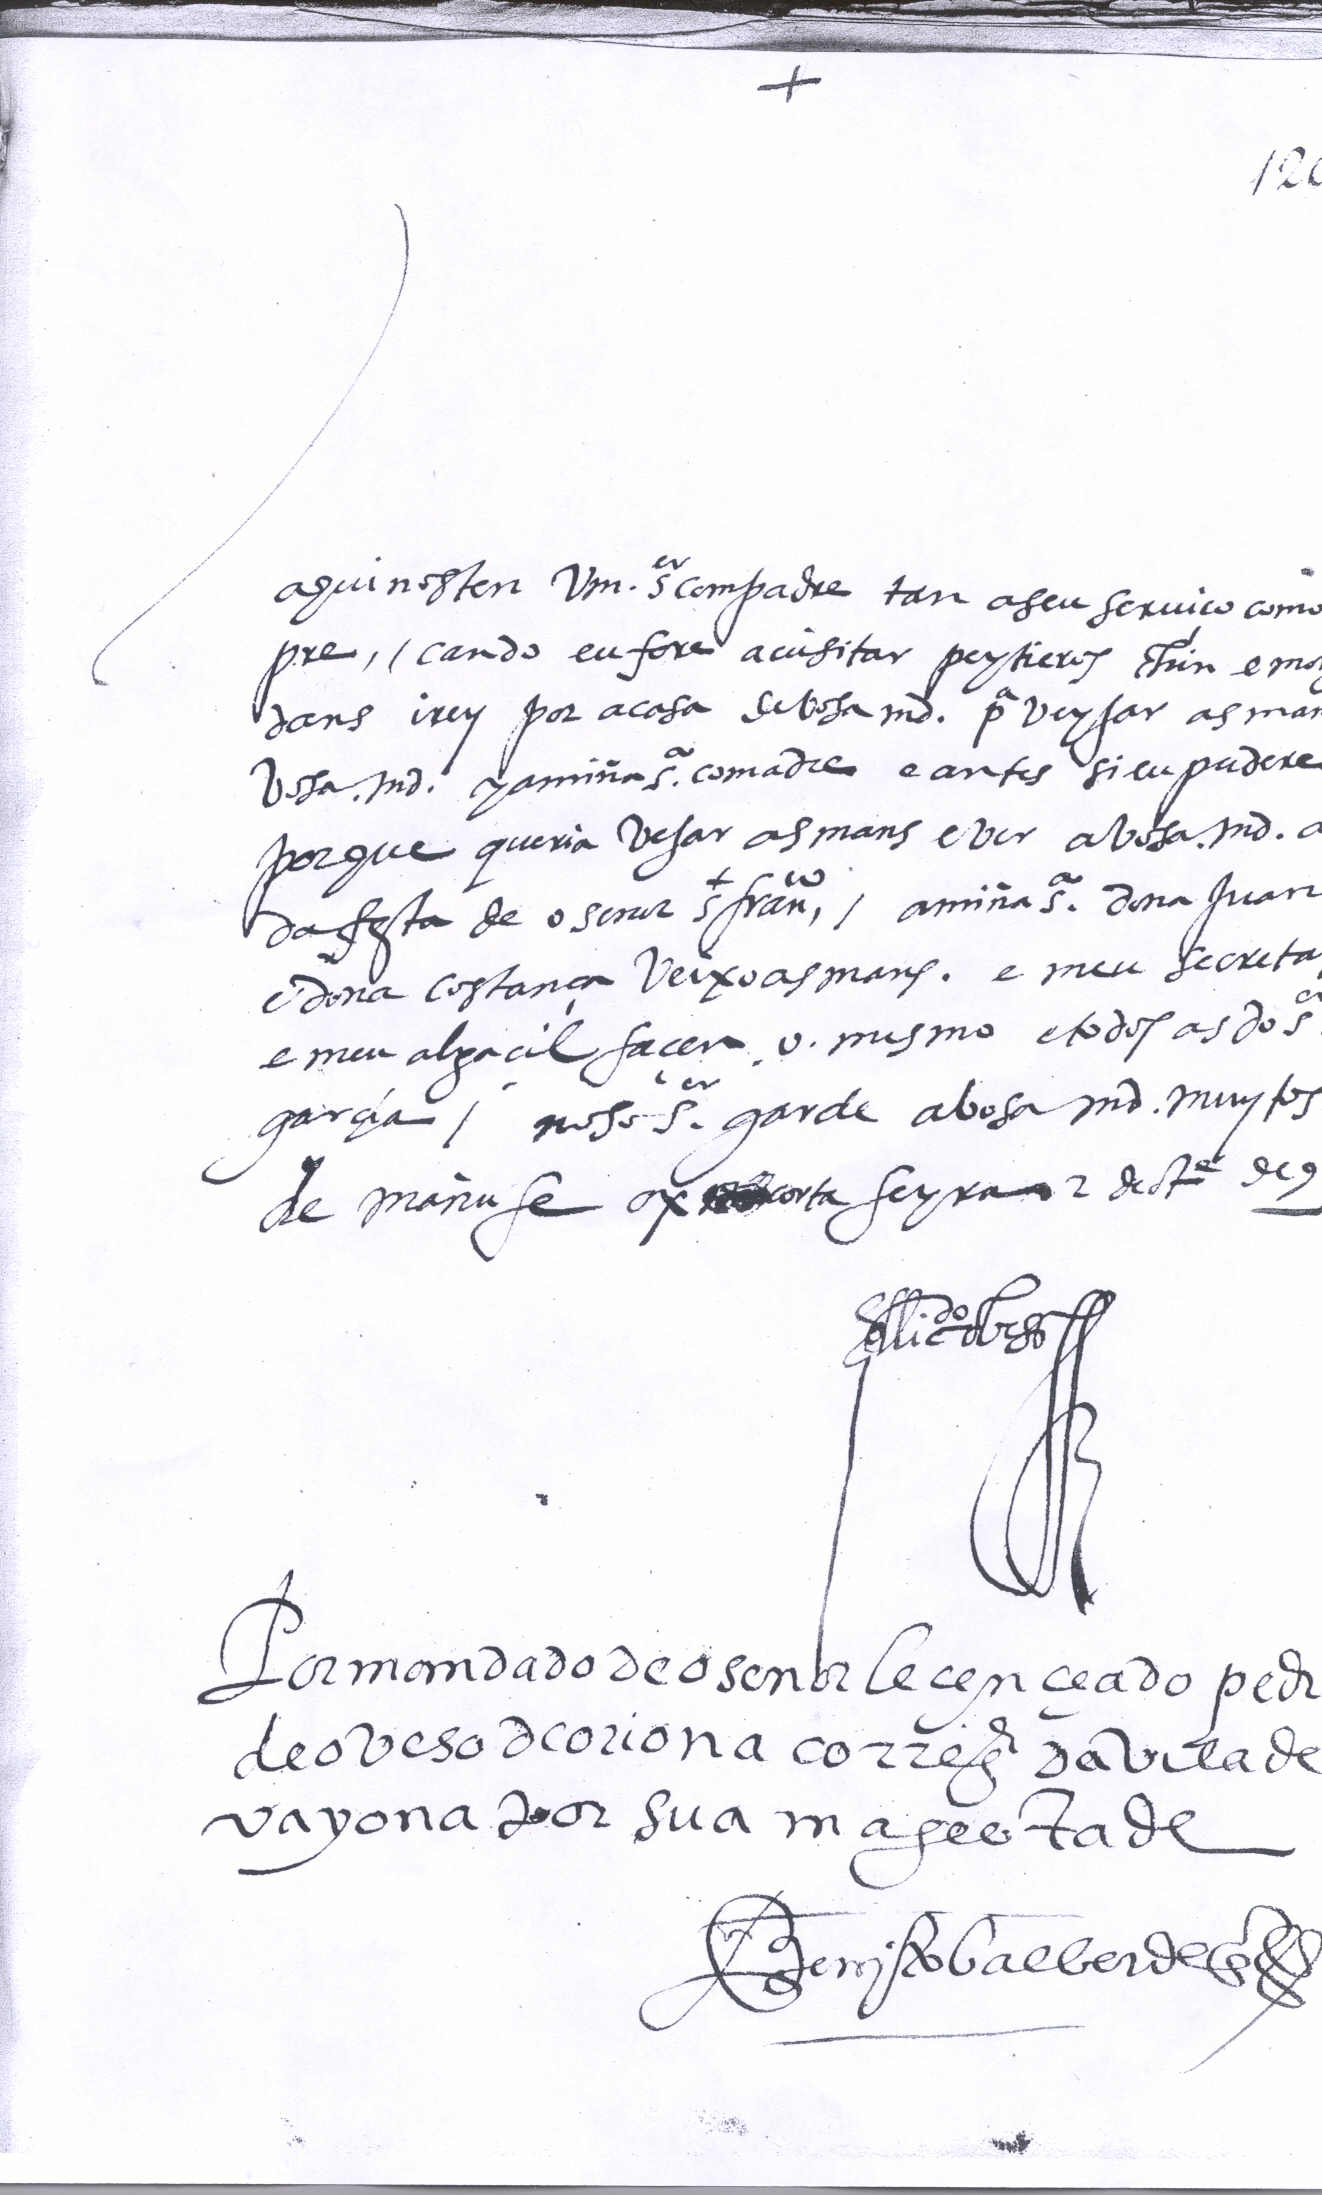 +
120
aqui nos ten Vm. sor compadre tan a seu seruico como
pre, / cando eu fore a uisitar peytieros e mon
dans irey por a casa de vosa md. pa veysar as man
Vosa. md. y a miña sa. comadre e antes si eu pudere
porque queria vesar as mans e ver a vosa. md. a
da festa de o senor st franco, / a miña sa. dona Juan
e dona costança veixo as mans. e meu secreta
e meu algacil facen o. mesmo e todos as do sor
garçia / noso sor. garde a vosa md. muytos
de mañu fe ox corta feyra 2 de ste de
El licdo obeso
Por mandado de o senor lecençeado pedr
de oveso de coriona corregor da vila de
vayona por sua mageestade